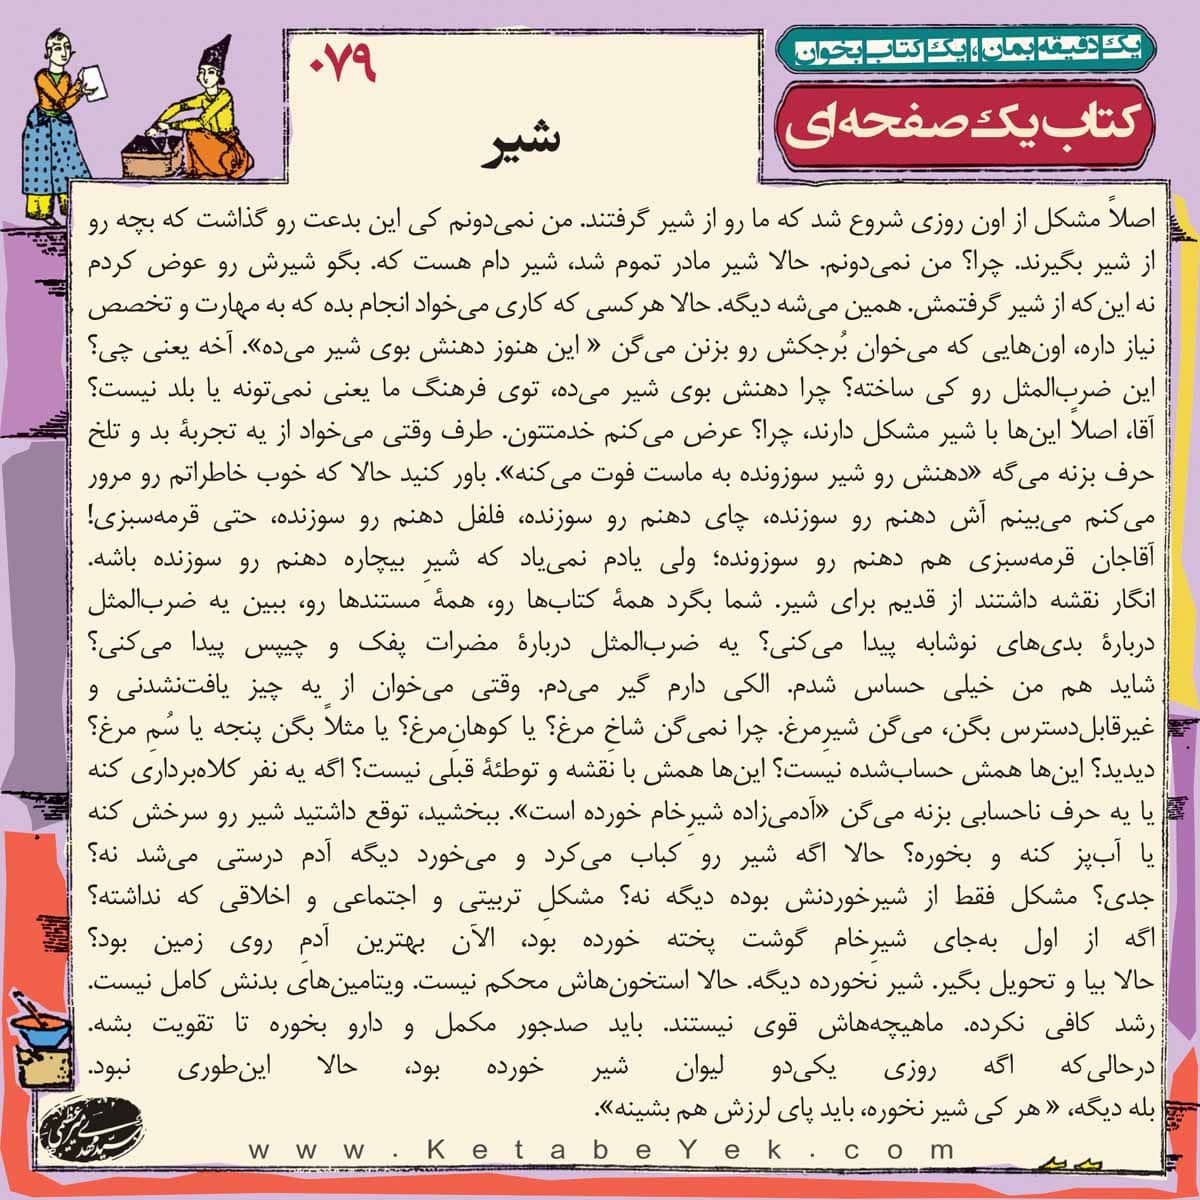 یک دقیقه بمان، یک کتاب بخوان
کتاب یک صفحه‌ای
۰۷۹
شیر
اصلاً مشکل از اون روزی شروع شد که ما رو از شیر گرفتند. من نمی‌دونم کی این بدعت رو گذاشت که بچه رو
از شیر بگیرند. چرا؟ من نمی‌دونم. حالا شیر مادر تموم شد، شیر دام هست که. بگو شیرش رو عوض کردم
نه این‌که از شیر گرفتمش. همین می‌شه دیگه. حالا هرکسی که کاری می‌خواد انجام بده که به مهارت و تخصص
نیاز داره، اون‌هایی که می‌خوان بُرجکش رو بزنن می‌گن « این هنوز دهنش بوی شیر می‌ده». آخه یعنی چی؟
این ضرب‌المثل رو کی ساخته؟ چرا دهنش بوی شیر می‌ده، توی فرهنگ ما یعنی نمی‌تونه یا بلد نیست؟
آقا، اصلاً این‌ها با شیر مشکل دارند، چرا؟ عرض می‌کنم خدمتتون. طرف وقتی می‌خواد از یه تجربهٔ بد و تلخ
حرف بزنه می‌گه «دهنش رو شیر سوزونده به ماست فوت می‌کنه». باور کنید حالا که خوب خاطراتم رو مرور
می‌کنم می‌بینم آش دهنم رو سوزنده، چای دهنم رو سوزنده، فلفل دهنم رو سوزنده، حتی قرمه‌سبزی!
آقاجان قرمه‌سبزی هم دهنم رو سوزونده؛ ولی یادم نمی‌یاد که شیرِ بیچاره دهنم رو سوزنده باشه.
انگار نقشه داشتند از قدیم برای شیر. شما بگرد همهٔ کتاب‌ها رو، همهٔ مستندها رو، ببین یه ضرب‌المثل
دربارهٔ بدی‌های نوشابه پیدا می‌کنی؟ یه ضرب‌المثل دربارهٔ مضرات پفک و چیپس پیدا می‌کنی؟
شاید هم من خیلی حساس شدم. الکی دارم گیر می‌دم. وقتی می‌خوان از یه چیز یافت‌نشدنی و
غیرقابل‌دسترس بگن، می‌گن شیرِمرغ. چرا نمی‌گن شاخِ مرغ؟ یا کوهانِ‌مرغ؟ یا مثلاً بگن پنجه یا سُمِ مرغ؟
دیدید؟ این‌ها همش حساب‌شده نیست؟ این‌ها همش با نقشه و توطئهٔ قبلی نیست؟ اگه یه نفر کلاه‌برداری کنه
یا یه حرف ناحسابی بزنه می‌گن «آدمی‌زاده شیرِخام خورده است». ببخشید، توقع داشتید شیر رو سرخش کنه
یا آب‌پز کنه و بخوره؟ حالا اگه شیر رو کباب می‌کرد و می‌خورد دیگه آدم درستی می‌شد نه؟
جدی؟ مشکل فقط از شیرخوردنش بوده دیگه نه؟ مشکلِ تربیتی و اجتماعی و اخلاقی که نداشته؟
اگه از اول به‌جای شیرِخام گوشت پخته خورده بود، الآن بهترین آدمِ روی زمین بود؟
حالا بیا و تحویل بگیر. شیر نخورده دیگه. حالا استخون‌هاش محکم نیست. ویتامین‌های بدنش کامل نیست.
رشد کافی نکرده. ماهیچه‌هاش قوی نیستند. باید صدجور مکمل و دارو بخوره تا تقویت بشه.
درحالی‌که اگه روزی یکی‌دو لیوان شیر خورده بود، حالا این‌طوری نبود.
بله دیگه، « هر کی شیر نخوره، باید پای لرزش هم بشینه».
www.KetabeYek.com